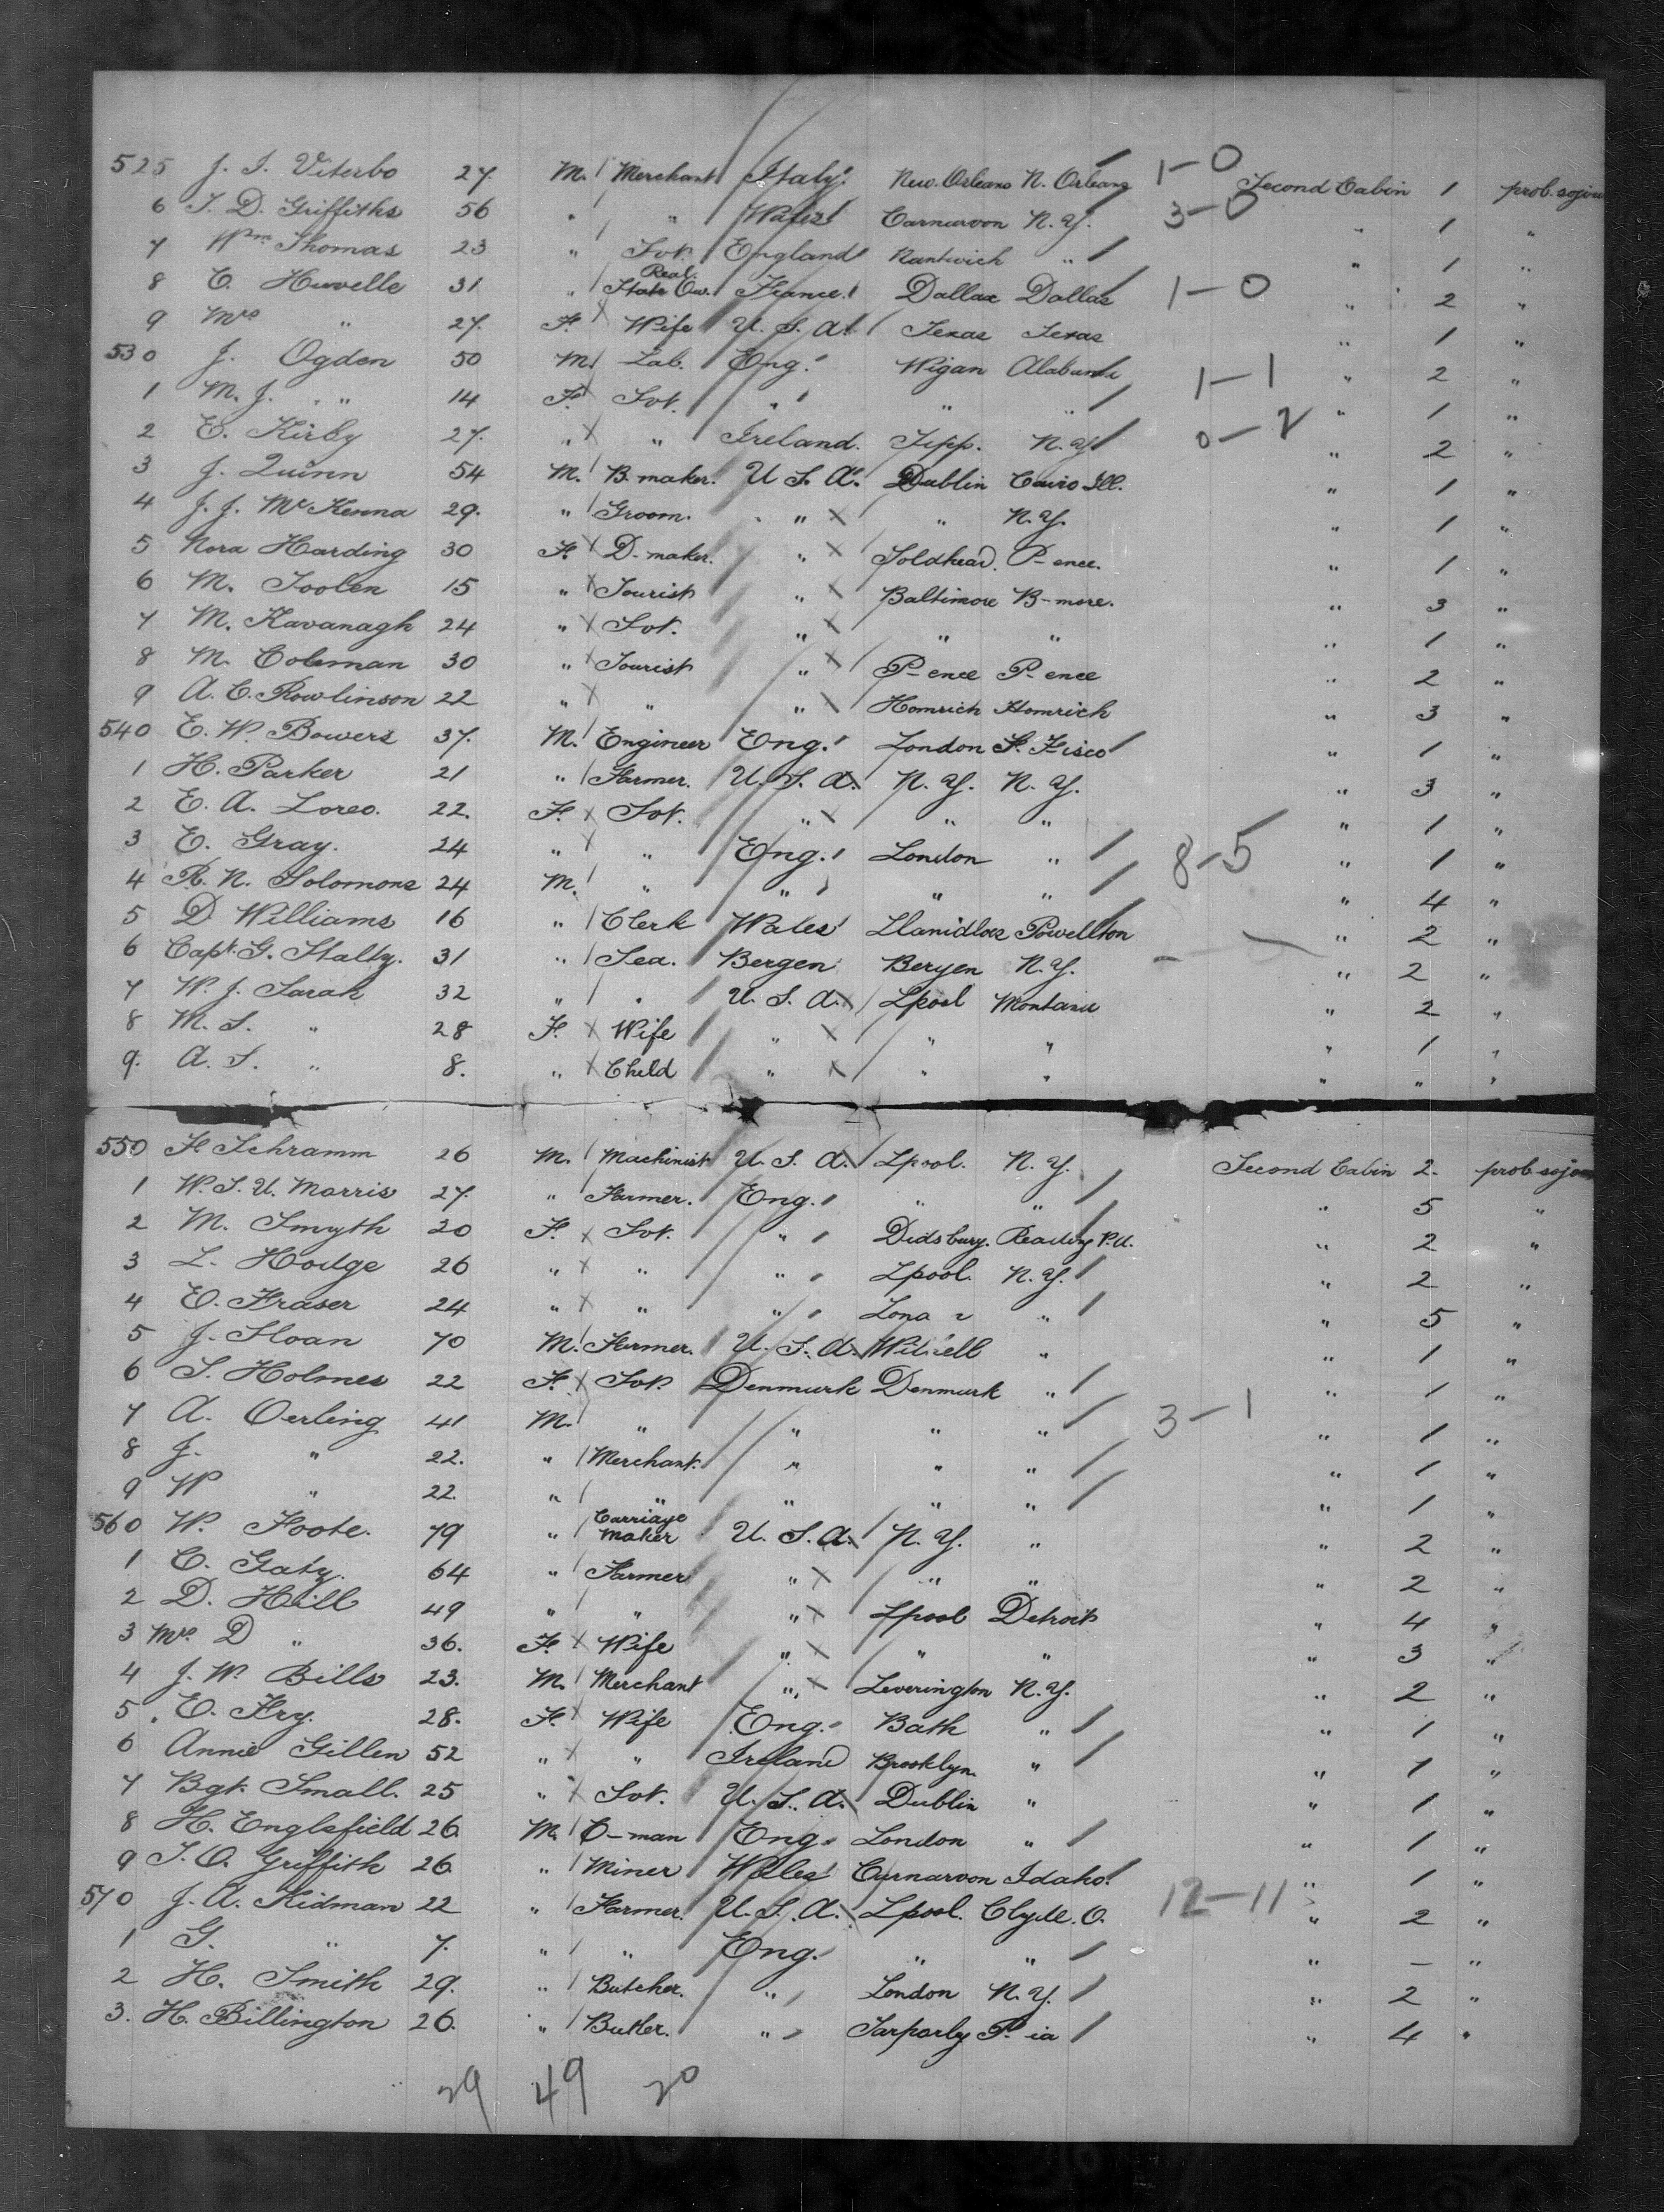 525 J. I. Viterbo 27. M. Merchant Italy. New. Orleans N. Orleans 1-0 Second Cabin 1 prob. sojou
6 T. D. Griffiths 56 " " Wales Carnarvon N. Y. 3-0 " 1 "
7 Wm Thomas 23 " Svt. England Nantwich " " 1 "
8 C. Huvelle 31 " Real State Ow. France. Dallas Dallas 1-0 " 2 "
9 Mrs " 27. F. Wife U. S. A. Texas Texas " 1 "
530 J. Ogden 50 M. Lab. Eng. Wigan Alabama " 2 "
1 M. J. " 14 F. Svt. " " " 1-1 " 1 "
2 E. Kirby 27. " " Ireland. Tipp. N. Y. 0-2 " 2 "
3 J. Quinn 54 M. B. maker. U S. A. Dublin Cairo Ill. " 1 "
4 J. J. McKenna 29. " Groom. " " N. Y. " 1 "
5 Nora Harding 30 F. D-maker. " P-ence. " 1 "
6 M. Toolen 15 " Tourist " Baltimore B-more. " 3 "
7 M. Kavanagh 24 " Svt. " " " " 1 "
8 M. Coleman 30 " Tourist " P-ence P-ence " 2 "
9 A. C. Rowlinson 22 " " " Homrich Homrich " 3 "
540 E. W. Bowers 37. M. Engineer Eng. London S. Fisco " 1 "
1 H. Parker 21 " Farmer. U. S. A. N. Y. N. Y. " 3 "
2 E. A. Loreo. 22. F. Svt. " " " " 1 "
3 E. Gray. 24 " " Eng. London " 8-5 " 1 "
4 R. N. Solomons 24 M. " " " " " 4 "
5 D Williams 16 " Clerk Wales Llanidloes Powellton " 2 "
6 Capt. G. Stalty. 31 " Sea. Bergen Bergen N. Y. " 2 "
7 W. J. Sarak 32 " " U. S. A. Lpool Montana " 2 "
8 M. S. " 28 F. Wife " " " " 1 "
9. A. S. " 8. " Child " " " " " "
550 F Schramm 26 M. Machinist U. S. A. Lpool. N. Y. Second Cabin 2. prob. sojou
1 W. S. U. Morris 27. " Farmer. Eng. " " " 5 "
2 M. Smyth 20 F. Svt. " Didsbury. Reading P.A. " 2 "
3 L. Hodge 26 " " " Lpool. N. Y. " 2 "
4 E. Fraser 24 " " " " " 5 "
5 J. Sloan 70 M. Farmer. U. S. A. " " 1 "
6 S. Holmes 22 F. Svt. Denmark Denmark " " 1 "
7 A. Oerling 41 M. " " " " 3-1 " 1 "
8 J. " 22. " Merchant. " " " " 1 "
9 W " 22. " " " " " " 1 "
560 W. Foote. 79 " Carriage Maker U. S. A. N. Y. " " 2 "
1 C. Gaty. 64 " Farmer " " " " 2 "
2 D. Hill 49 " " " Lpool Detroit " 4 "
3 Mrs D " 36. F. Wife " " " " 3 "
4 J. W. Bills 23. M. Merchant " Leverington N. Y. " 2 "
5 E. Fry. 28. F. Wife Eng. Bath " " 1 "
6 Annie Gillen 52 " " Ireland Brooklyn " " 1 "
7 Bgt. Small. 25 " Svt. U. S. A. Dublin " " 1 "
8 H. Englefield 26. M. C-man Eng. London " " 1 "
9 T. O. Griffith 26 " Miner Wales Carnarvon Idaho. " 1 "
570 J. A. Kidman 22 " Farmer. U. S. A. Lpool. Clyde. O. 12-11 " 2 "
1 G. " 7. " " Eng. " " " - "
2 H. Smith 29. " Butcher. " London N. Y. " 2 "
3. H. Billington 26. " Butler. " Tarporly P-ia " 4 "
29 49 20